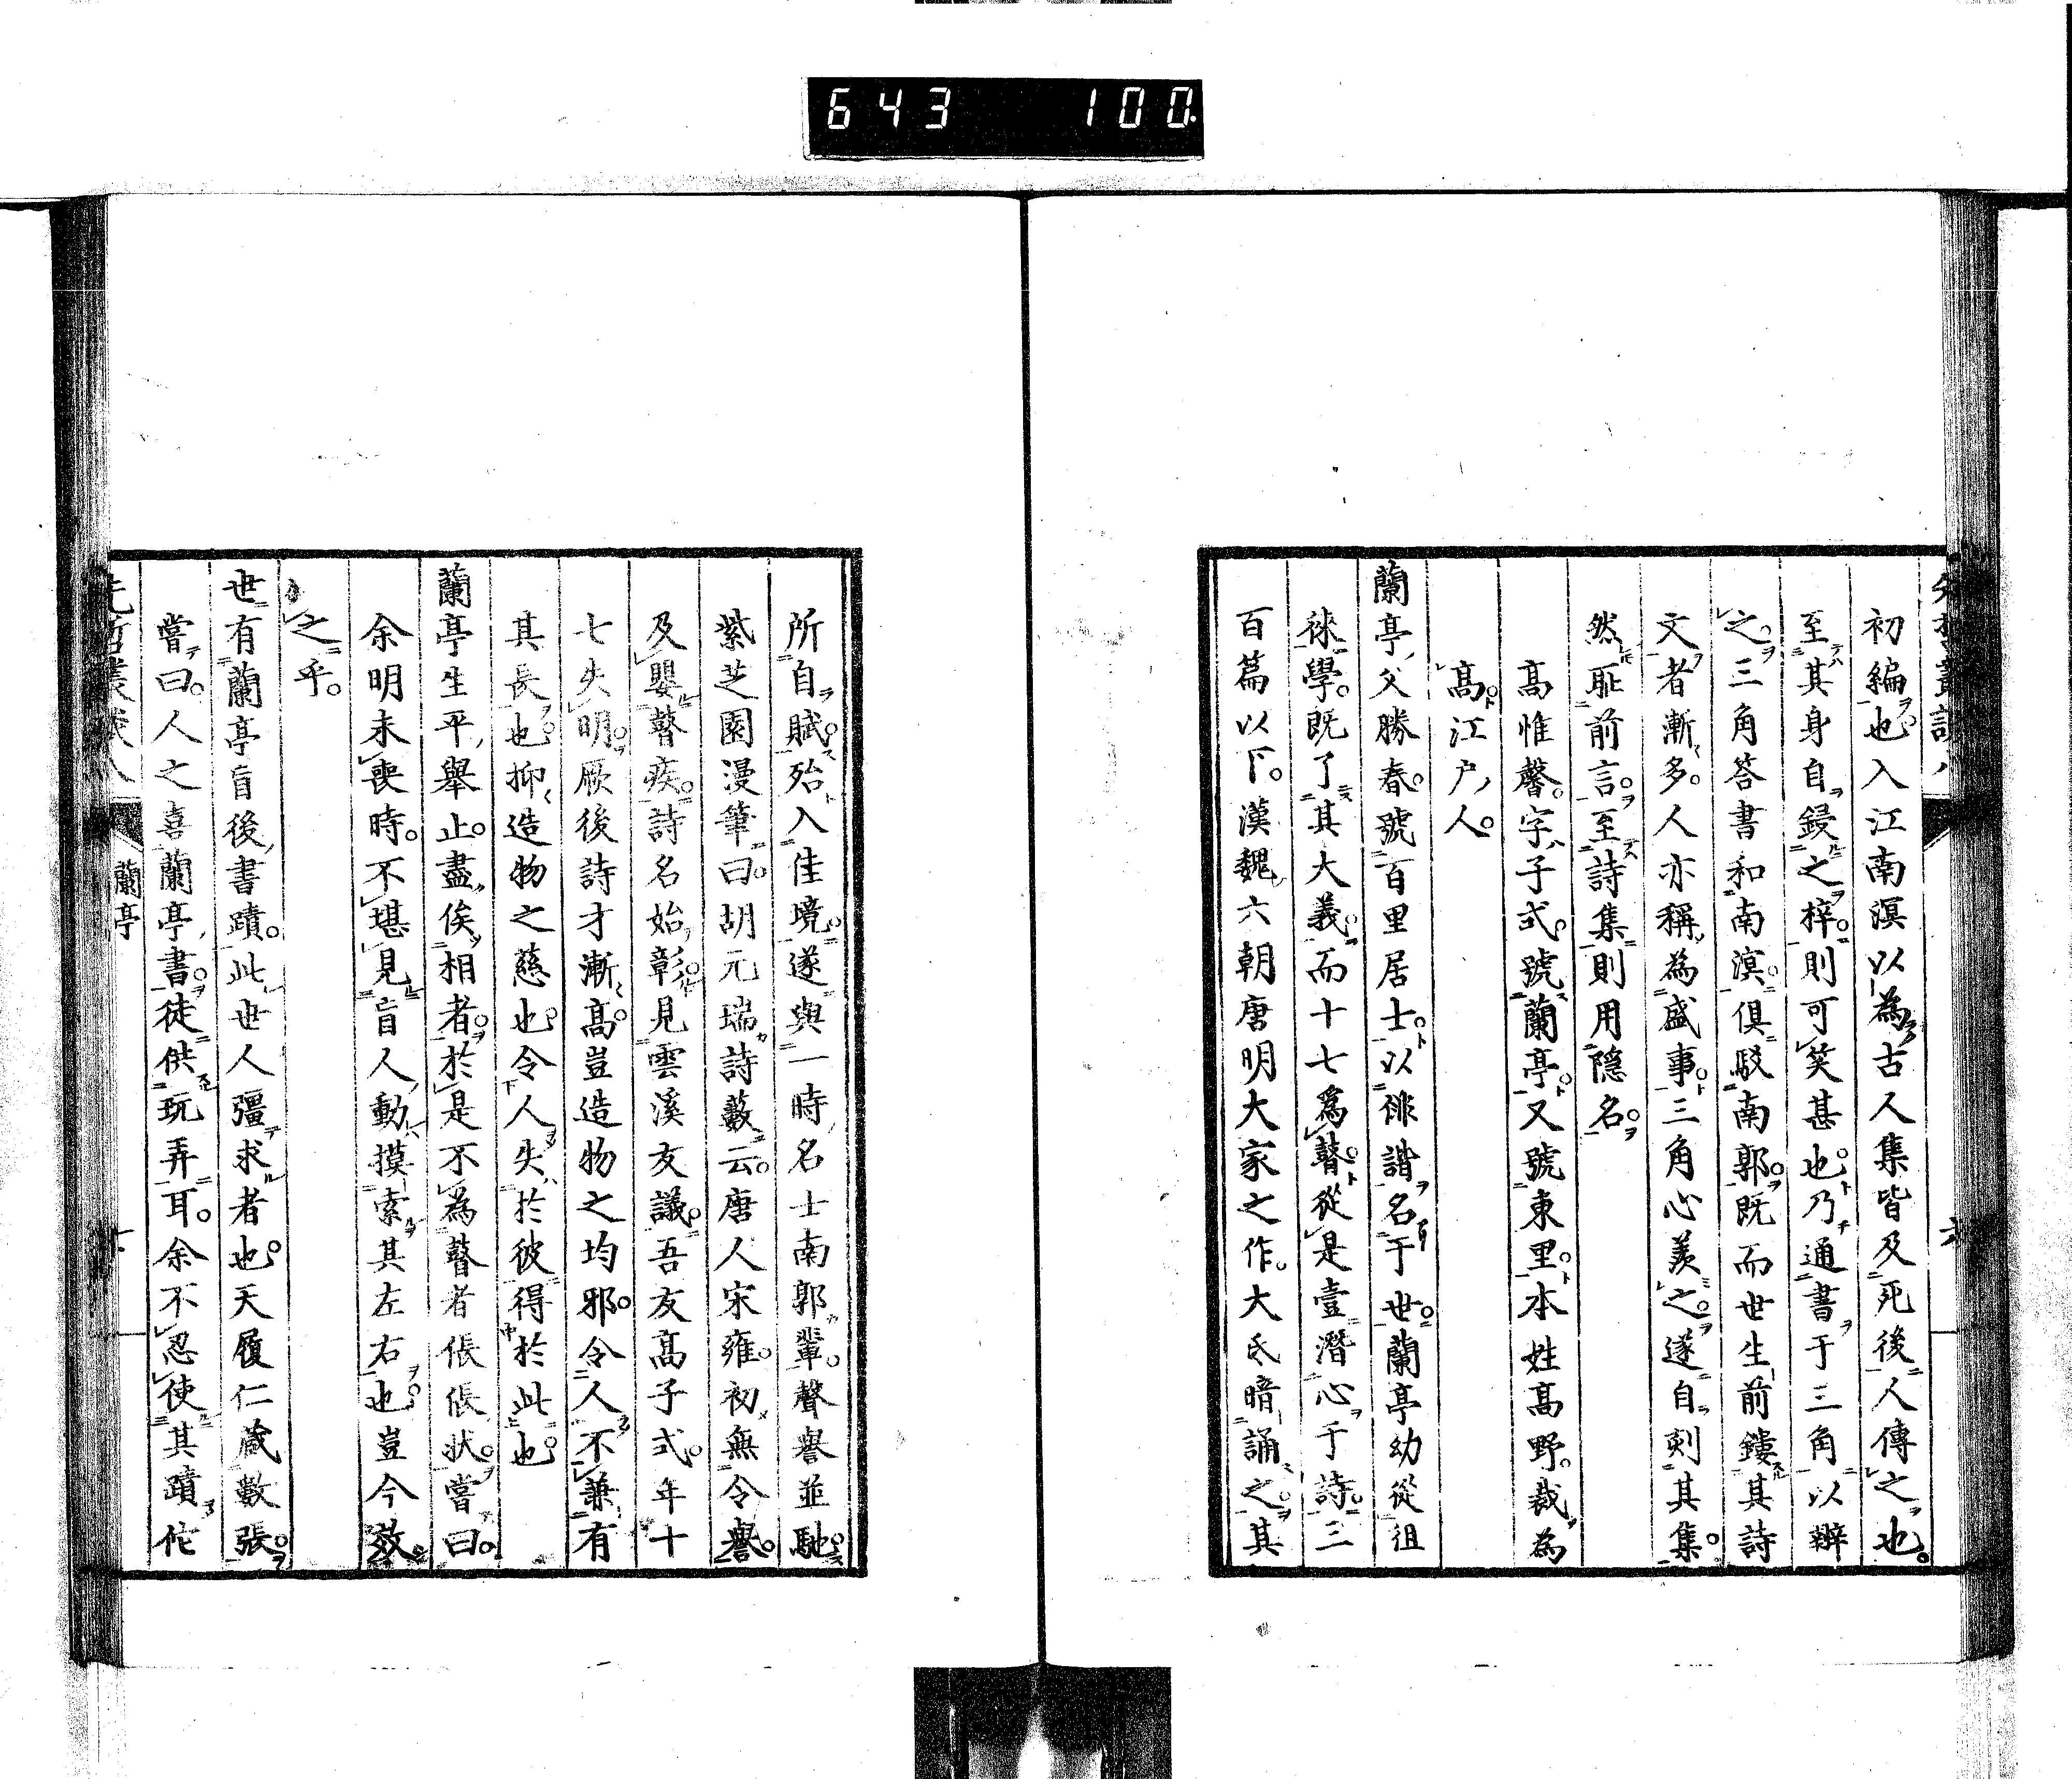 643 100
初編也入江南溟以為古人集皆及死後人傳之也
至其身自鋟之梓則可笑甚也乃通書于三角以辨
之三角答書和南溟俱駁南郭既而世生前鏤其詩
文者漸多人亦稱為盛事三角心羨之遂自刻其集
然恥前言至詩集則用隱名
高惟馨字子式號蘭亭又號東里本姓高野裁為
高江戶人
蘭亭父勝春號百里居士以俳諧名于世蘭亭幼從徂
徠學既了其大義而十七爲瞽從是壹潛心于詩三
百篇以下漢魏六朝唐明大家之作大氐暗誦之其
所自賦殆入佳境遂與一時名士南郭輩聲譽並馳
紫芝園漫筆曰胡元瑞詩藪云唐人宋雍初無令譽
及嬰瞽疾詩名始彰見雲溪友議吾友高子式年十
七失明厥後詩才漸高豈造物之均邪令人不兼有
其長也抑造物之慈也令人失於彼得於此也
蘭亭生平舉止盡俟相者於是不為瞽者倀倀状嘗曰
余明未喪時不堪見盲人動摸索其左右也豈今效
之乎
世有蘭亭盲後書蹟此世人彊求者也天履仁蔵數張
嘗曰人之喜蘭亭書徒供玩弄耳余不忍使其蹟佗
蘭亭